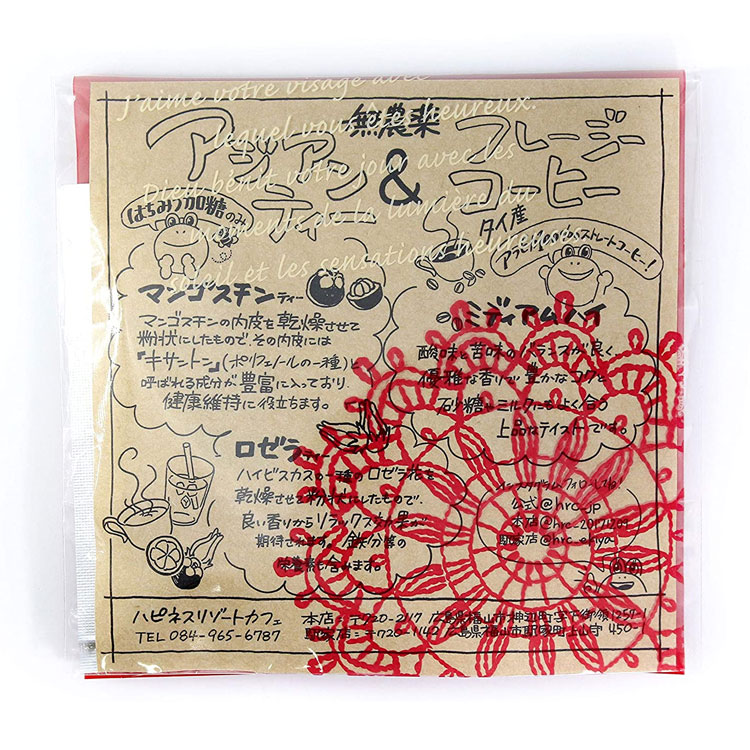 J'aime votre visage avec
lequel vous êtes heureux.
Dieu bénit votre jour avec les
moments de la lumière du
soleil et les sensations heureuses.
無農薬
アジアン
ティー
&
フレージー
コーヒー
はちみつ加糖のみ
タイ産
ストレートコーヒー!
マンゴスチンティー
マンゴスチンの内皮を乾燥させて
粉状にしたもので、その内皮には
「キサントン」(ポリフェノールの一種)と
呼ばれる成分が豊富に入っており、
健康維持に役立ちます。
ミディアムハイ
酸味と苦味のバランスが良く、
優雅な香りと豊かなコクと
砂糖やミルクにもよく合う
上品なテイストです。
ロゼラティー
ハイビスカスの一種のロゼラ花を
乾燥させて粉状にしたもので、
良い香りからリラックス効果が
期待されます。鉄分等の
栄養素も含みます。
インスタグラム フォローしてね!
公式@hrc_jp
本店@hrc_20171209
駅家店@hrc_ekiya
ハピネスリゾートカフェ
TEL 084-965-6787
本店:〒720-2117 広島県福山市神辺町字下御領1257-1
駅家店:〒720-1142 広島県福山市駅家町上山守 450-1